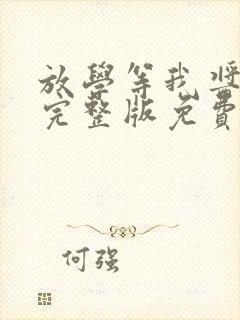 放學等我獎
完整版免費
何強